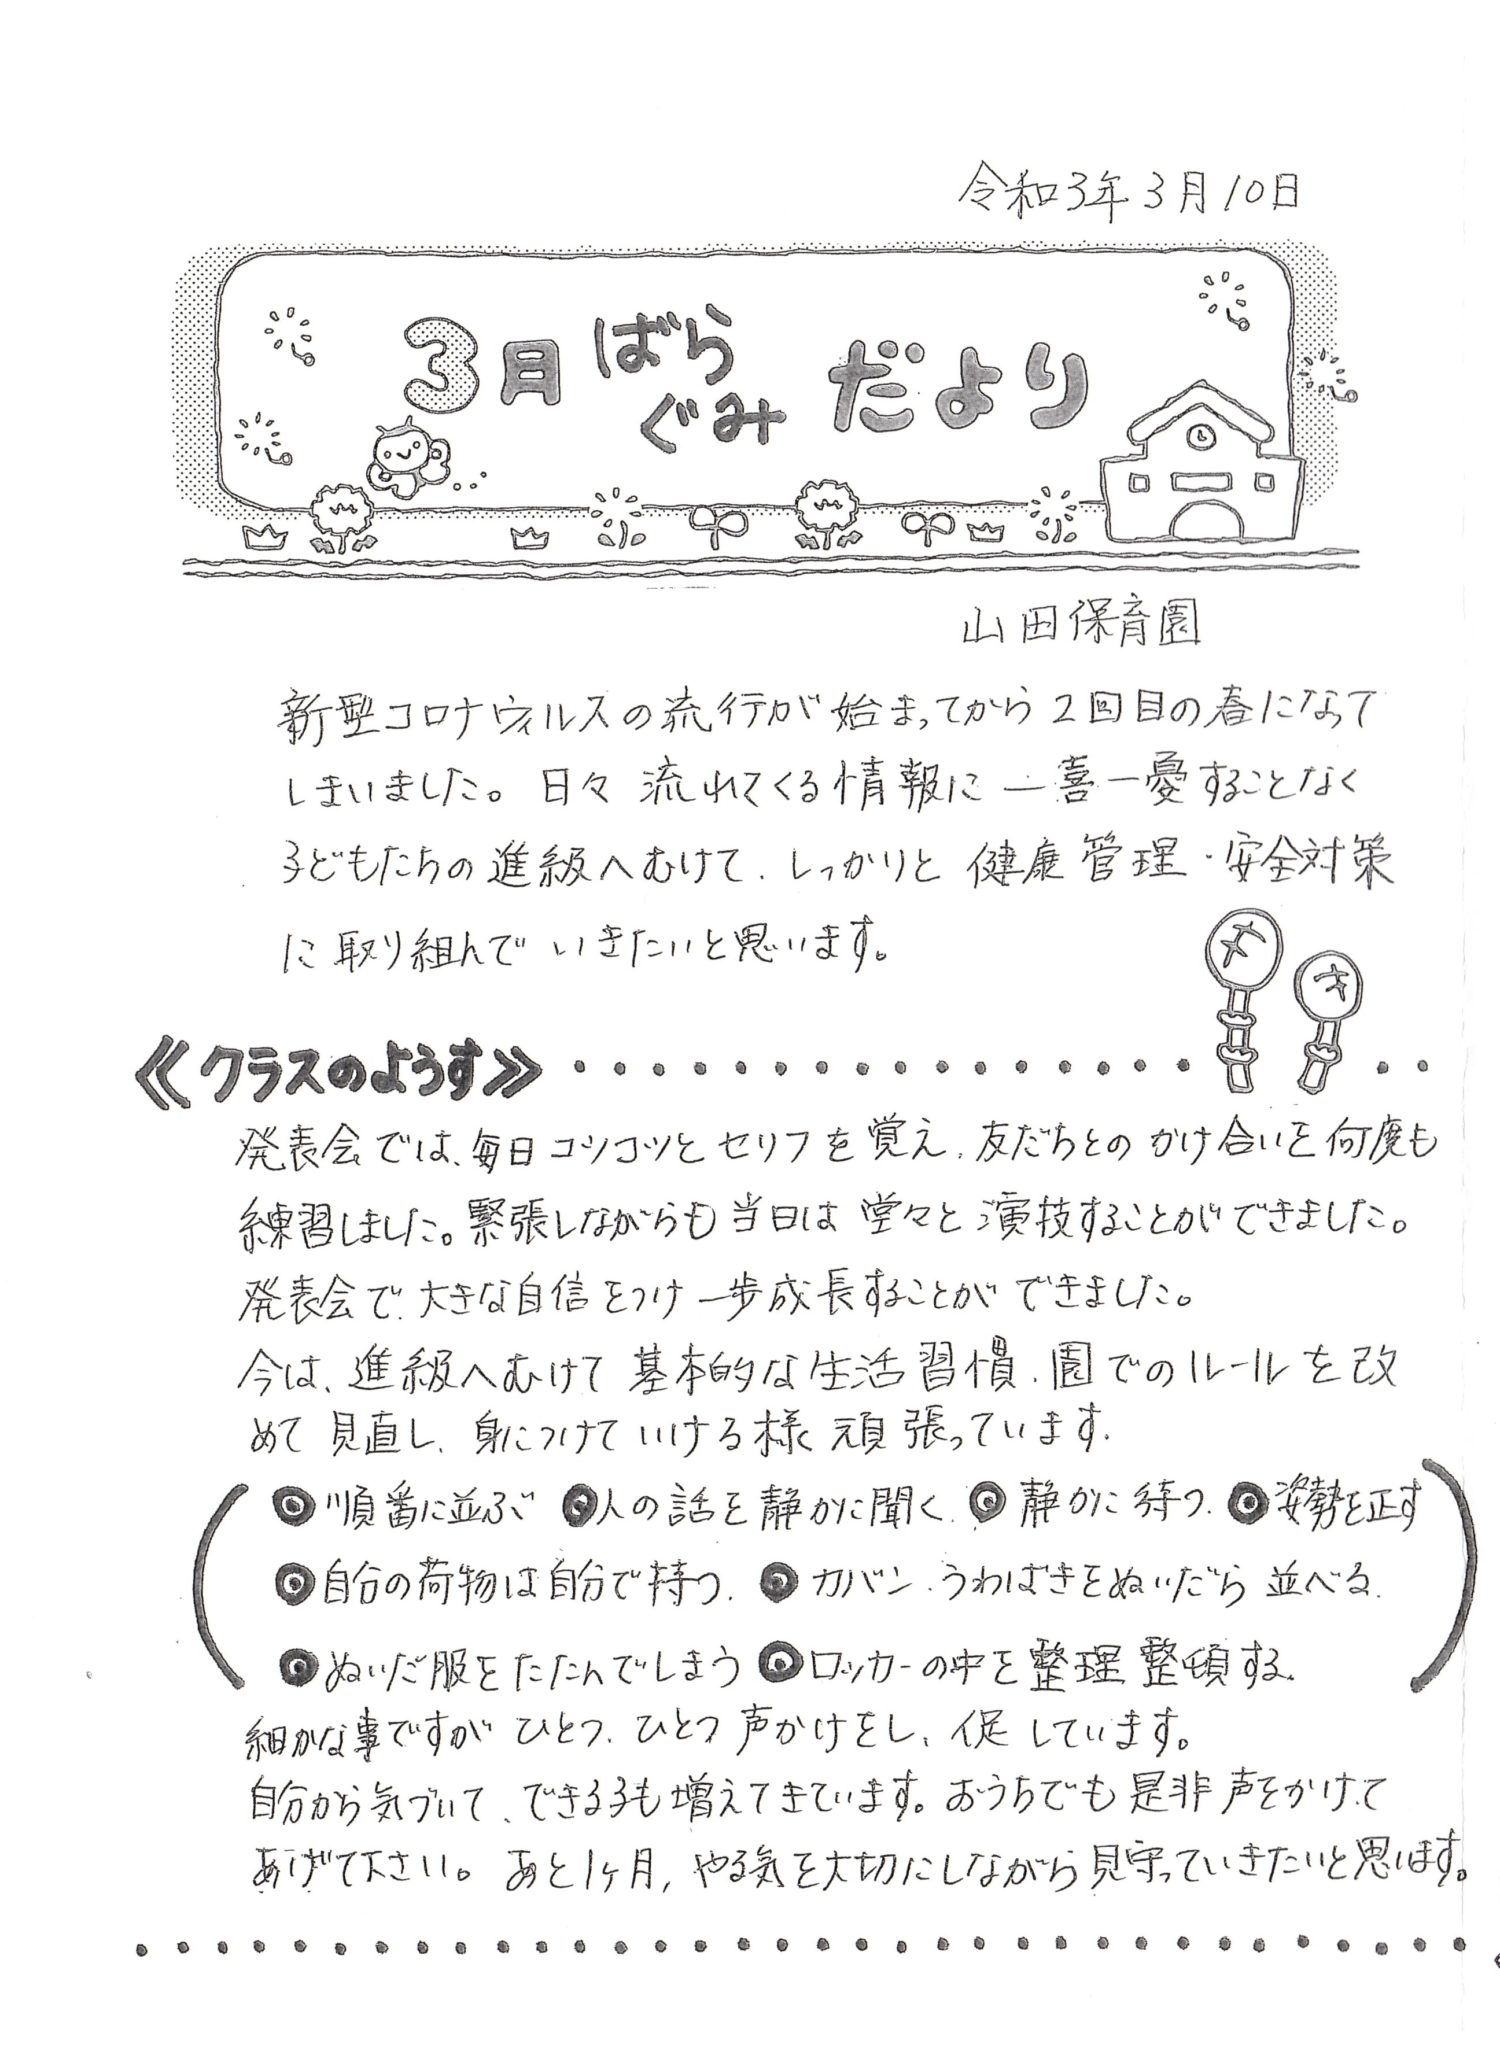 令和3年3月10日
3月 ばらぐみ だより
山田保育園
新型コロナウィルスの流行が始まってから2回目の春になって
しまいました。日々流れてくる情報に一喜一憂することなく
子どもたちの進級へむけて、しっかりと健康管理・安全対策
に取り組んでいきたいと思います。
《クラスのようす》
発表会では、毎日コツコツとセリフを覚え、友だちとのかけ合いを何度も
練習しました。緊張しながらも当日は堂々と演技することができました。
発表会で、大きな自信をつけ一歩成長することができました。
今は、進級へむけて基本的な生活習慣、園でのルールを改
めて見直し、身につけていける様頑張っています。
◎順番に並ぶ ◎人の話を静かに聞く、◎静かに待つ、◎姿勢を正す
◎自分の荷物は自分で持つ、◎カバン、うわばきをぬいだら並べる、
◎ぬいだ服をたたんでしまう ◎ロッカーの中を整理整頓する、
細かな事ですがひとつ、ひとつ声かけをし、促しています。
自分から気づいて、できる子も増えてきています。おうちでも是非声をかけて
あげて下さい。あと1ヶ月、やる気を大切にしながら見守っていきたいと思います。